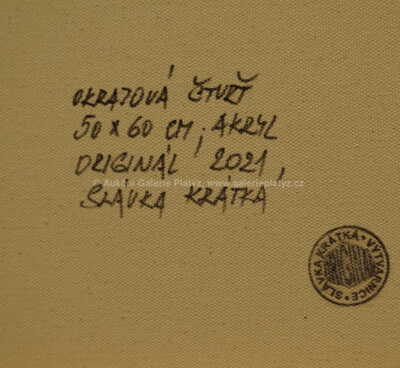 OKRAJOVÁ ČTVRŤ
50 x 60 CM, AKRYL
ORIGINÁL 2021,
© Aukční Galerie Platýz, www.galerieplatyz.cz
SLÁVKA KRÁTKÁ
SLÁVKA KRÁTKÁ • VÝTVARNICE •